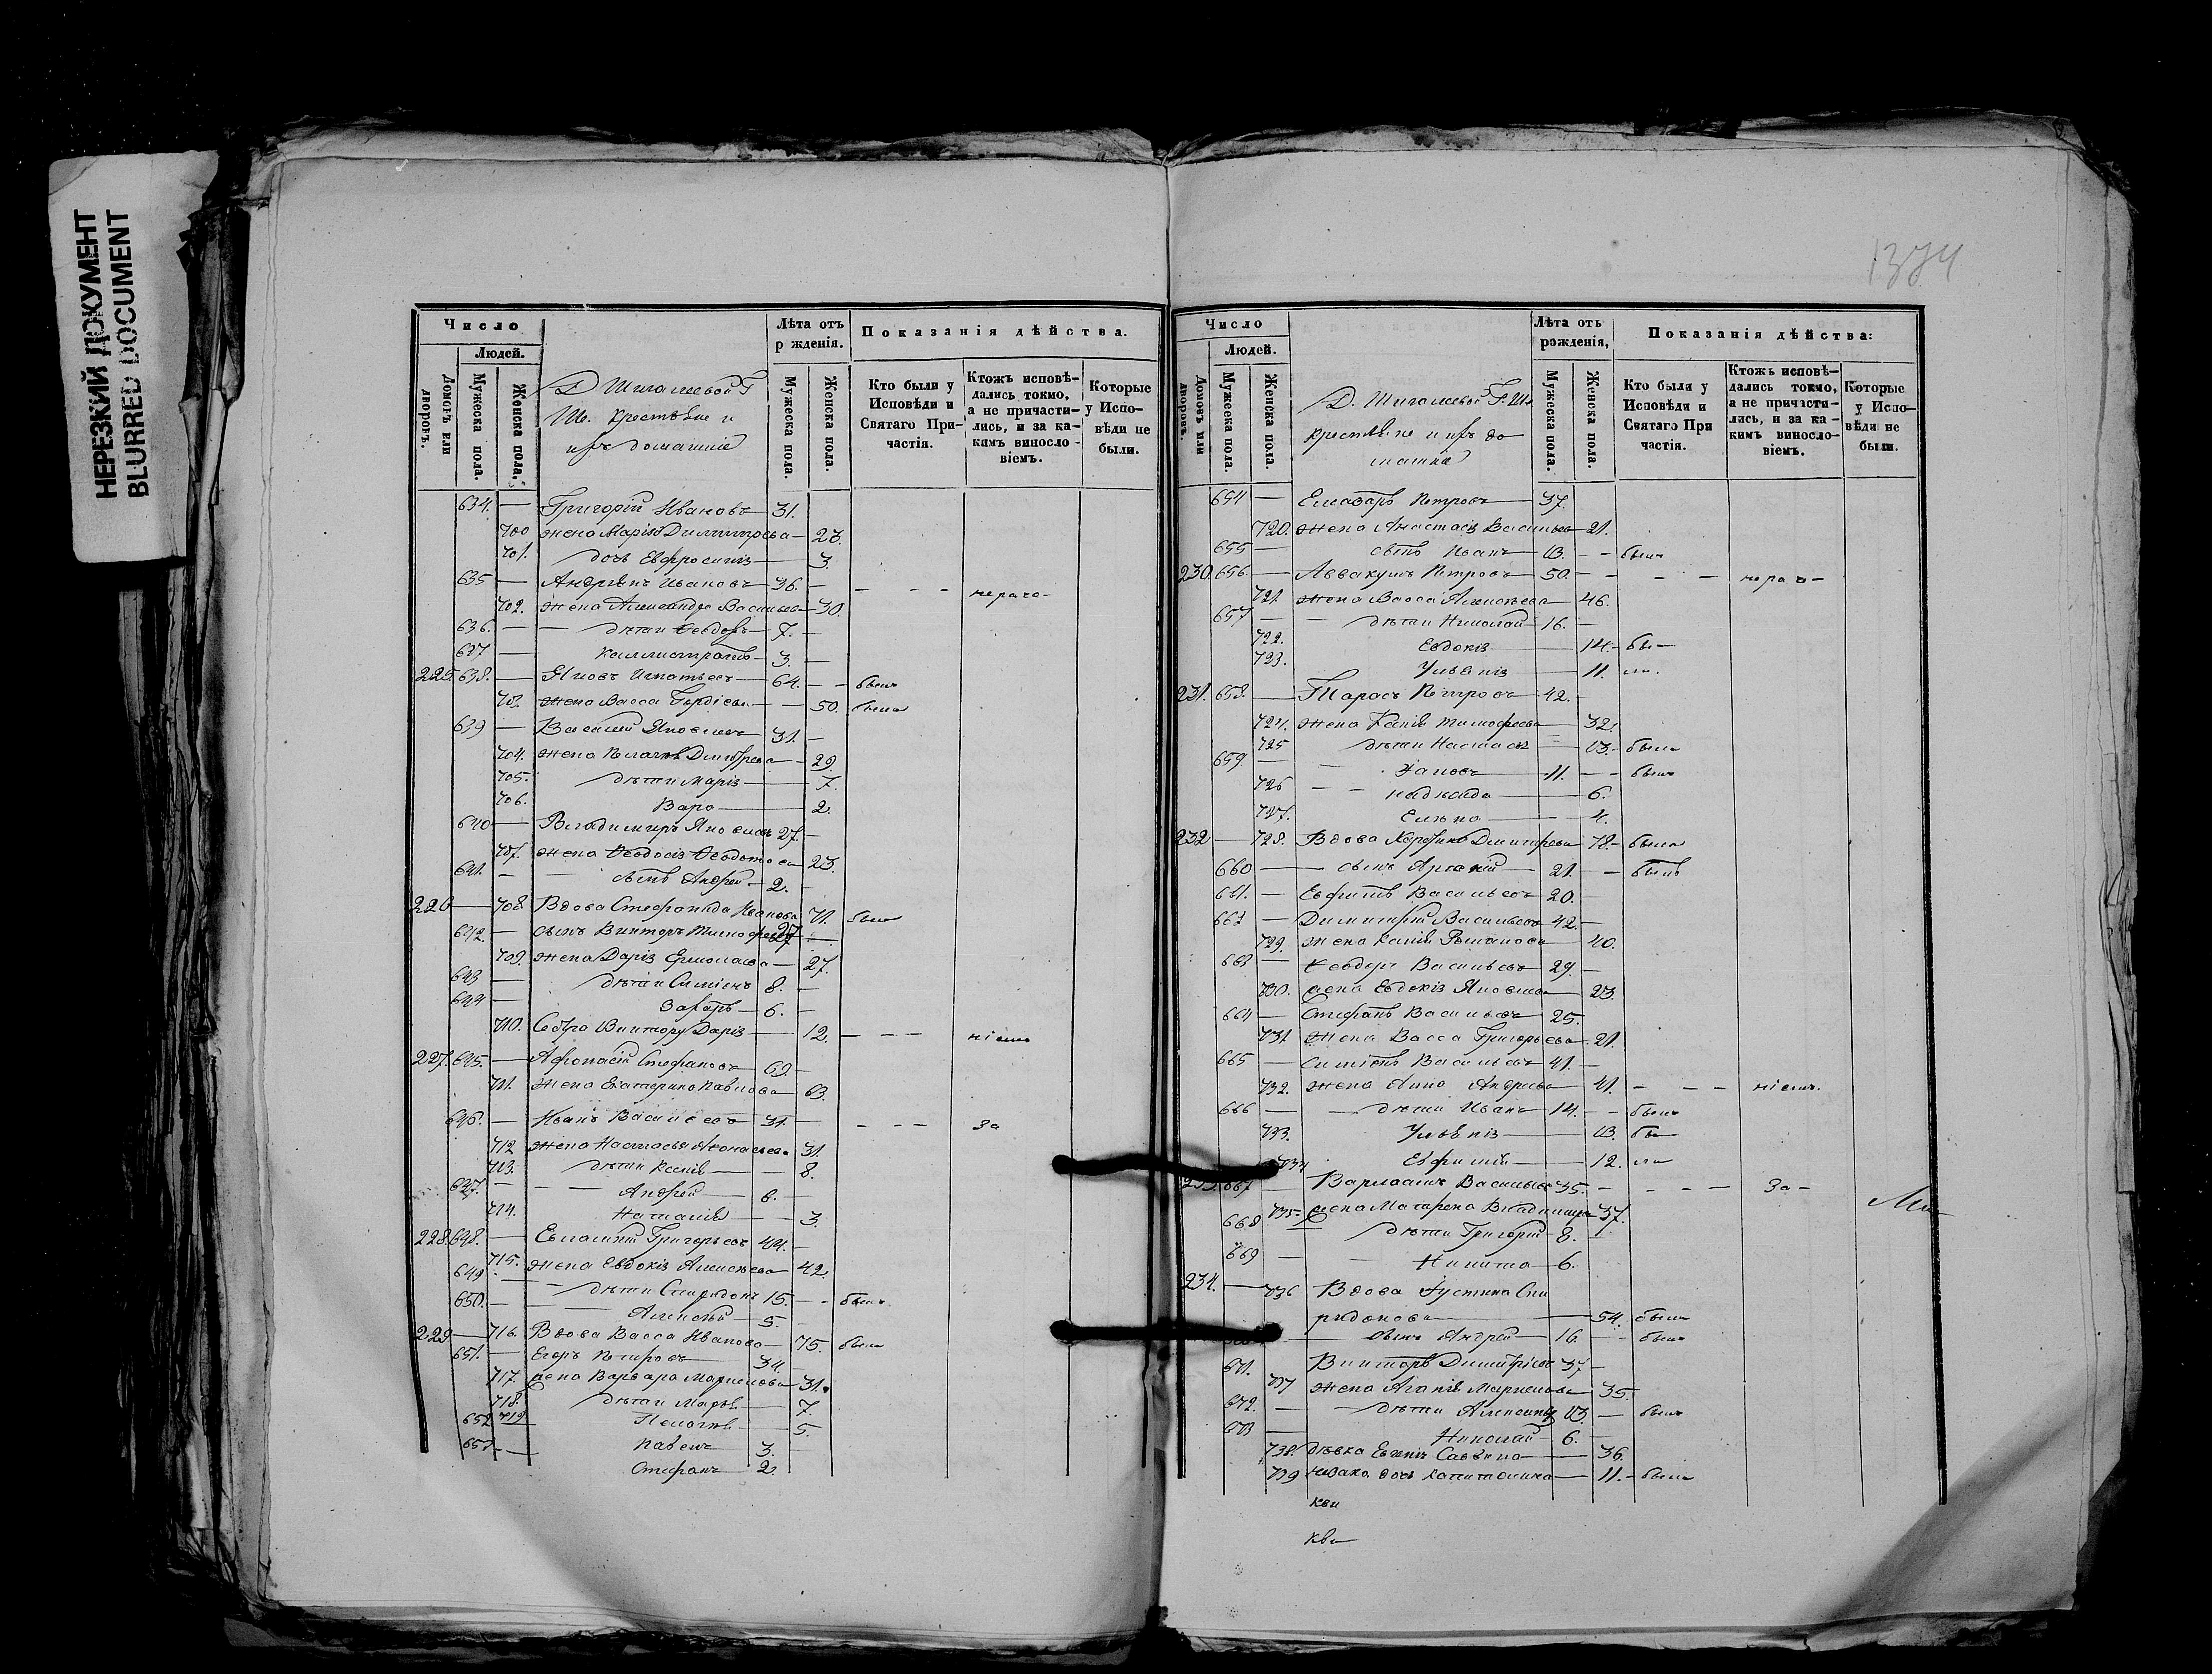 НЕРЕЗКИЙ ДОКУМЕНТ
BLURRED DOCUMENT
1374
Число
Людей.
Домовъ или дворовъ.
Мужеска пола.
Женска пола.
Лѣта отъ р жденія.
Мужеска пола.
Женска пола.
Показанія дѣйства.
Кто были у Исповѣди и Святаго Причастія.
Ктожъ исповѣдались токмо, а не причастились, и за какимъ виносло-віемъ.
Которые у Исповѣди не были.
крестьяне и
ихъ домашніе
634. — Григорій Ивановъ — 31.
700 жена Марія Димитрева — 23.
701. дочь Евфросинія — 3.
635 — Андріянъ Ивановъ — 36. —
702. жена Александра Васильева — 30
636. — — дѣти Ѳеодоръ — 7. —
637 — Каллистратъ — 3. —
225. 638. — Яковъ Игнатьевъ — 64. — — былъ
703. жена Васса Гордіева — — 50. была
639 — Василій Яковлевъ 31. —
704. жена Пелагія Димитрева — 29
705. дѣти Марія — 7.
706. Вара — 2.
640 — Владимиръ Яковлевъ 27. —
707. жена Ѳеодосія Ѳеодотова 23.
641. — — сынъ Андрей — 2. —
226 — 708. Вдова Стефанида Иванова 71. была
642. — сынъ Викторъ Тимофеевъ 27 —
709. жена Дарія Ермолаева — 27.
643 — дѣти Симеонъ 8. —
644 — Захаръ — 6. —
710. Сестра Виктору Дарія — 12. — — —
227. 645. — Афонасій Стефановъ 69. —
711. жена Екатерина Павлова — 63.
646. — Иванъ Васильевъ — 31. — — — — за
712 жена Настасья Афонасьева 31.
713. дѣти Ксенія — 8.
647. — — Андрей — 6. —
714. Наталія — 3.
228. 648. — Евлампій Григорьевъ 44. —
715. жена Евдокія Алексѣева — 42.
649 — дѣти Спиридонъ 15. — — былъ
650. — Алексѣй — 5. —
229 — 716. Вдова Васса Иванова — 75. была
651. — Егоръ Петровъ 34. —
717. жена Варвара Маркелова — 31.
718. дѣти Марья — 7.
652 719 Пелагія — 5.
653 — Павелъ — 3.
Стефанъ — 2.
Число
Людей.
Домовъ или дворовъ.
Мужеска пола.
Женска пола.
Лѣта отъ рожденія,
Мужеска пола.
Женска пола.
Показанія дѣйства:
Кто были у Исповѣди и Святаго При частія.
Ктожъ исповѣдались токмо, а не причастились, и за какимъ виносло-віемъ.
Которые у Исповѣди не были.
крестьяне и ихъ до
машніе
654 — Елеазаръ Петровъ — 37.
720. жена Анастасія Васильева — 21.
655 — сынъ Иванъ — 13. — — былъ
230. 656. — Аввакумъ Петровъ — 50. — — — —
721. жена Васса Алексѣева — 46.
657 — — дѣти Николай — 16. —
722. Евдокія — 14. — бы —
723. Ульянія — 11. ли.
231. 658. — Тарасъ Петровъ — 42. —
724. жена Ксенія Тимофеева — 32.
725 дѣти Настасья — 13. — была
659. — — Яковъ — 11. — — былъ
726 — — Надежда — 6.
727. Елена — 4.
232 — 728. Вдова Димитрева — 78. — была
660 — сынъ 21. — — былъ
661. — Евфимъ Васильевъ 20. —
662 — Димитрій Васильевъ 42. —
729. жена Ксенія Романова — 40.
663 — Ѳеодоръ Васильевъ 29. —
730. жена Евдокія Яковлева — 23.
664 — Стефанъ Васильевъ — 25.
731. жена Васса Григорьева — 21.
665 — Симеонъ Васильевъ 41. —
732. жена Анна Андреева — 41. — — —
666 — дѣти Иванъ — 14. — — былъ
733. Ульянія — 13. бы —
734 Евфимія — 12. ли
233. 667 — Варлаамъ Васильевъ 35. — — — — За —
735 — жена Матрена Владимирова 37.
668 дѣти Григорій — 8. —
669 — Никита — 6.
234. — 736 Вдова Іустина Спи
ридонова — 54. была
сынъ Андрей — 16. — былъ
671. Викторъ Димитріевъ 37 —
737 жена Агапія Маркелова — 35.
672. — — дѣти Александръ 13. — былъ
673 — Николай — 6. —
738. дѣвка Евгенія Саввина — 36.
739 дочь Капитолина — 11. — была